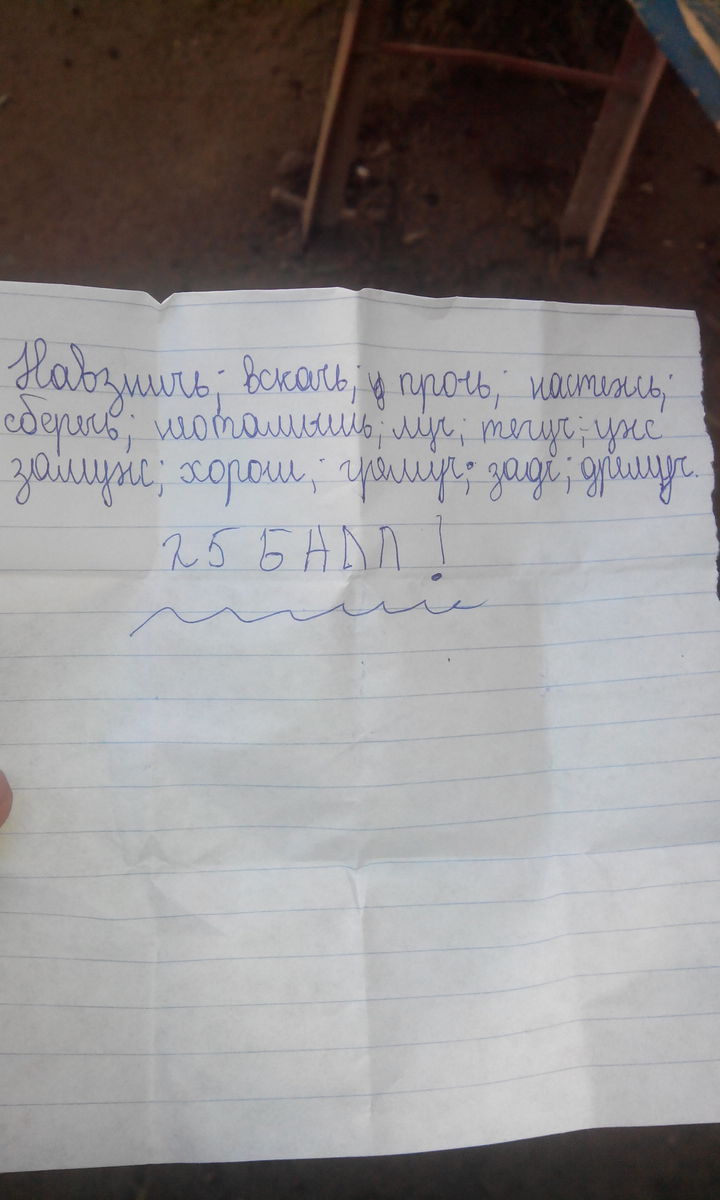 Навзничь; вскачь; прочь; настежь;
сберечь; неотомышь; луч; текуч; уж
замуж; хорош; гремуч; задч; дремуч.
25 БАЛЛ!